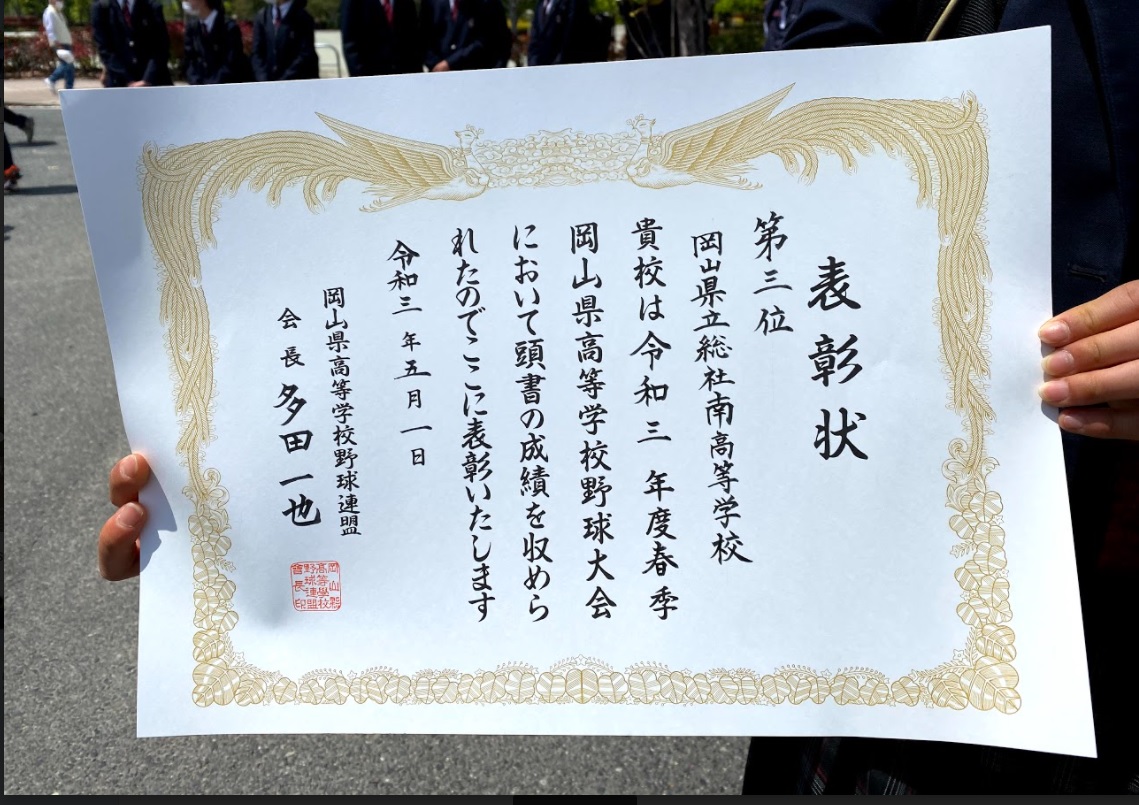 表彰状
第三位
岡山県立総社南高等学校
貴校は令和三年度春季
岡山県高等学校野球大会
において頭書の成績を収めら
れたのでここに表彰いたします
令和三年五月一日
岡山県高等学校野球連盟
会長 多田一也
岡山縣
高等學校
野球連盟
會長印